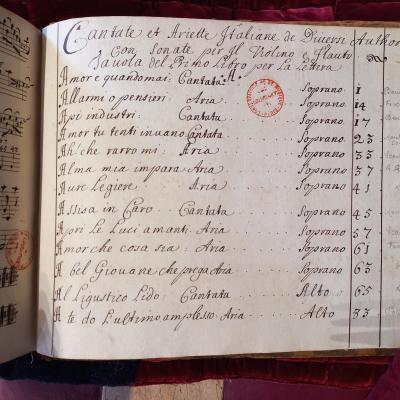 Cantate et Ariette Italiane de Diversi Authori
Con Sonate per Il Violino e Flauti
Tavola del Primo Libro per La Lettera
A.
Amor e quando mai: Cantata Soprano 1
Allarmi o pensieri: Aria Soprano 14
Api industri: Cantata Soprano 17
Amor tu tenti in vano Cantata Soprano 23
Ah! che rarro mi: Aria Soprano 35
Alma mia impara Aria Soprano 37
Aure Legiere: Aria Soprano 41
Assisa in Caro: Cantata Soprano 45
Apri le Luci amanti: Aria Soprano 57
Amor che cosa sia: Aria Soprano 61
Al bel Giouane che prega Aria Soprano 63
Al Ligustico Lido: Cantata Alto 65
A te do L'ultimo amplesso: Aria Alto 83